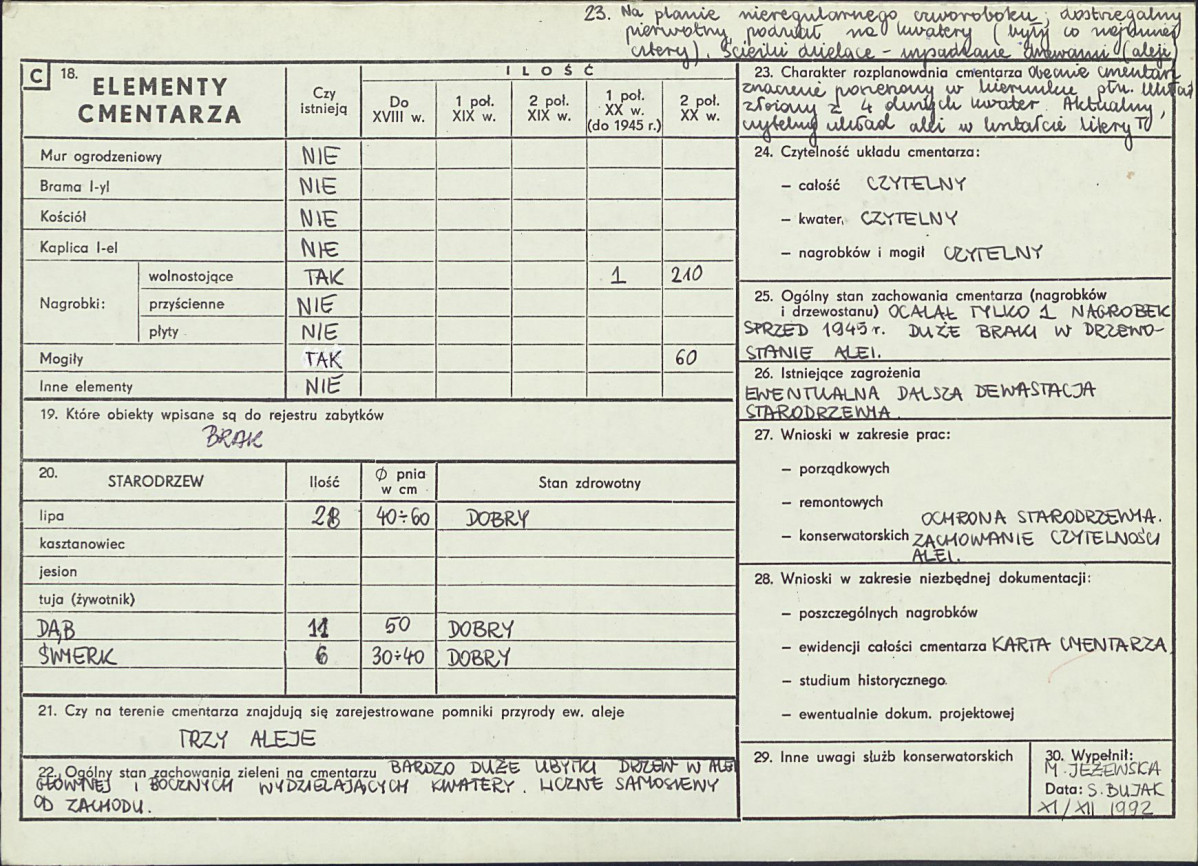 23. Na planie nieregularnego czworoboku, dostrzegalny
pierwotny podział na kwatery (były co najmniej
cztery). Ścieżki dzielące - wysadzane drzewami (aleje)
C 18. ELEMENTY CMENTARZA
Czy istnieją
ILOŚĆ
Do XVIII w.
1 poł. XIX w.
2 poł. XIX w.
1 poł. XX w. (do 1945 r.)
2 poł. XX w.
Mur ogrodzeniowy NIE
Brama I-yl NIE
Kościół NIE
Kaplica I-el NIE
Nagrobki:
wolnostojące TAK 1 210
przyścienne NIE
płyty NIE
Mogiły TAK 60
Inne elementy NIE
19. Które obiekty wpisane są do rejestru zabytków
BRAK
20. STARODRZEW Ilość Ø pnia w cm Stan zdrowotny
lipa 28 40÷60 DOBRY
kasztanowiec
jesion
tuja (żywotnik)
DĄB 11 50 DOBRY
ŚWIERK 6 30÷40 DOBRY
21. Czy na terenie cmentarza znajdują się zarejestrowane pomniki przyrody ew. aleje
TRZY ALEJE
22. Ogólny stan zachowania zieleni na cmentarzu BARDZO DUŻE UBYTKI DRZEW W ALEI
GŁÓWNEJ I BOCZNYCH WYDZIELAJĄCYCH KWATERY. LICZNE SAMOSIEWY
OD ZACHODU.
23. Charakter rozplanowania cmentarza Obecnie cmentarz
znacznie poszerzony w kierunku płn. Układ
złożony z 4 dużych kwater. Aktualny,
czytelny układ alei w kształcie litery T
24. Czytelność układu cmentarza:
– całość CZYTELNY
– kwater CZYTELNY
– nagrobków i mogił CZYTELNY
25. Ogólny stan zachowania cmentarza (nagrobków
i drzewostanu) OCALAŁ TYLKO 1 NAGROBEK
SPRZED 1945 r. DUŻE BRAKI W DRZEWO-
STANIE ALEI.
26. Istniejące zagrożenia
EWENTUALNA DALSZA DEWASTACJA
STARODRZEWIA.
27. Wnioski w zakresie prac:
– porządkowych
– remontowych
OCHRONA STARODRZEWIA.
– konserwatorskich ZACHOWANIE CZYTELNOŚCI
ALEI.
28. Wnioski w zakresie niezbędnej dokumentacji:
– poszczególnych nagrobków
– ewidencji całości cmentarza KARTA CMENTARZA
– studium historycznego
– ewentualnie dokum. projektowej
29. Inne uwagi służb konserwatorskich
30. Wypełnił:
M. JEŻEWSKA
Data: S. BUJAK
XI/XII 1992